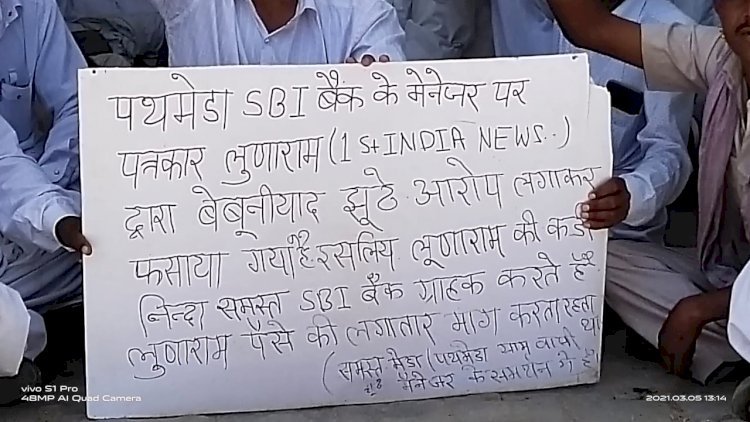 पथमेडा SBI बैंक के मेनेजर पर
पत्रकार लुणाराम (1 St INDIA NEWS..)
द्वारा बेबूनीयाद झूठे आरोप लगाकर
फसाया गया है इसलिय लूणाराम की कडी
निन्दा समस्त SBI बैंक ग्राहक करते है
लुणाराम पैसे की लगातार माग करता रहता
था
(समस्त मेडा / पथमेडा ग्राम वासी
मेनेजर के समर्थन मे है)
vivo S1 Pro
48MP AI Quad Camera
2021.03.05 13:14